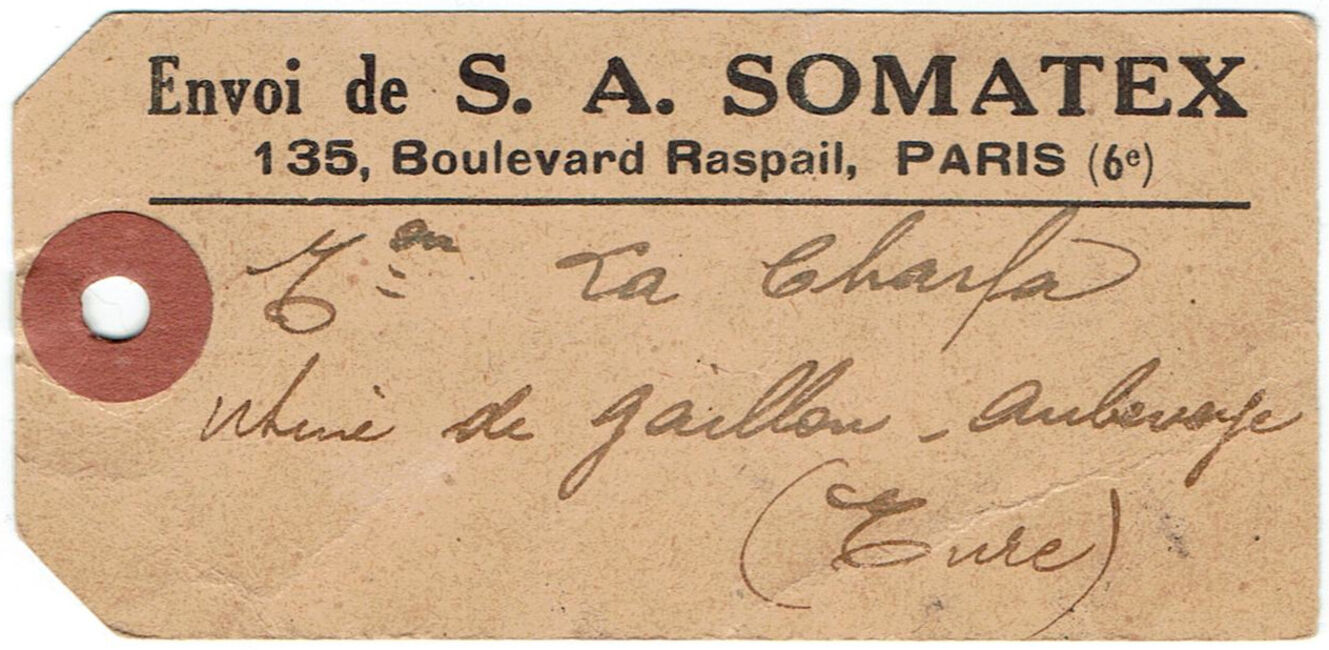 Envoi de S. A. SOMATEX
135, Boulevard Raspail, PARIS (6e)
La Charfa
Usine de Gaillon - Aubevoye
(Eure)